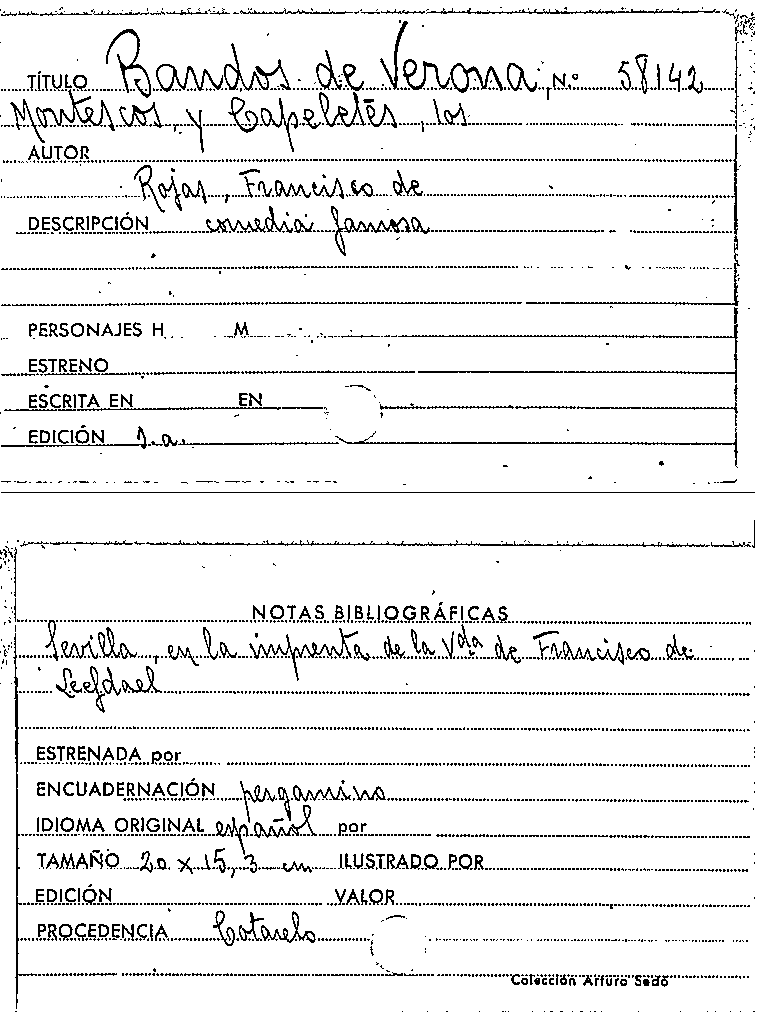 TÍTULO Bandos de Verona, N.º 58142
Montescos, y Capeletes, los
AUTOR
Rojas, Francisco de
DESCRIPCIÓN comedia famosa
PERSONAJES H M
ESTRENO
ESCRITA EN EN
EDICIÓN s.a.
NOTAS BIBLIOGRÁFICAS
Sevilla, en la imprenta de la Vda de Francisco de
Leefdael
ESTRENADA por
ENCUADERNACIÓN pergamino
IDIOMA ORIGINAL español por
TAMAÑO 20 x 15,3 cm ILUSTRADO POR
EDICIÓN VALOR
PROCEDENCIA Cotarelo
Colección Arturo Sedó